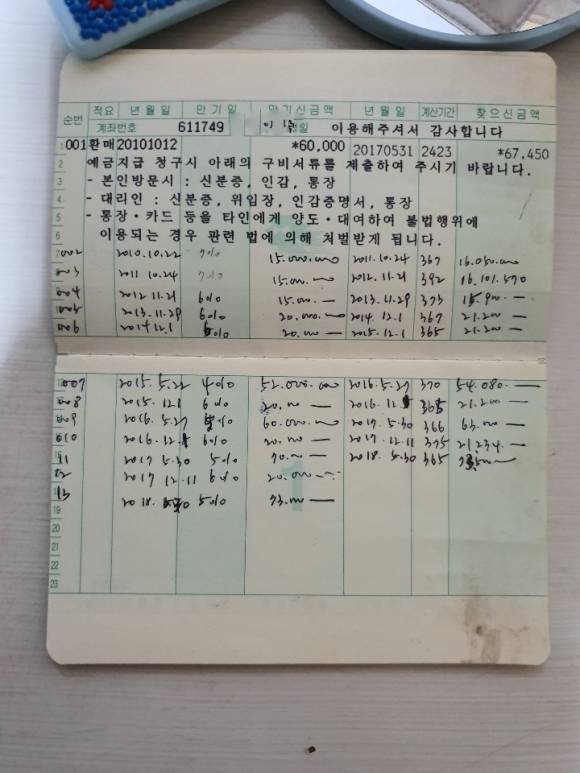 순번 적요 년월일 만기일 만기신금액 년월일 계산기간 찾으신금액
계좌번호 611749 이용해주셔서 감사합니다
1 001환매20101012 *60,000 20170531 2423 *67,450
2 예금지급 청구시 아래의 구비서류를 제출하여 주시기 바랍니다.
3 - 본인방문시 : 신분증, 인감, 통장
4 - 대리인 : 신분증, 위임장, 인감증명서, 통장
5 - 통장·카드 등을 타인에게 양도·대여하여 불법행위에
6 이용되는 경우 관련 법에 의해 처벌받게 됩니다.
002 2010.10.22 7% 15.000.000 2011.10.24 367 16.050.000
003 2011 10.24 7% 15.000.— 2012.11.21 392 16.101.570
004 2012 11.21 6% 15.000.— 2013.11.29 373 15.900.—
005 2013.11.29 6% 20.000.— 2014.12.1 367 21.200—
006 2014 12.1 6% 20.000— 2015.12.1 365 21.200—
007 2015.5.22 4% 52.000.000 2016.5.27 370 54.080.—
008 2015.12.1 6% 20.000— 2016.12. 365 21.200—
009 2016.5.27 5% 60.000.000 2017.5.30 366 63.000—
010 2016.12. 6% 20.000— 2017.12.11 375 21,234.—
11 2017 5.30 5% 70.000— 2018.5.30 365
12 2017 12.11 6% 20.000.—
13 2018. 5% 73.000—
19
20
21
22
23